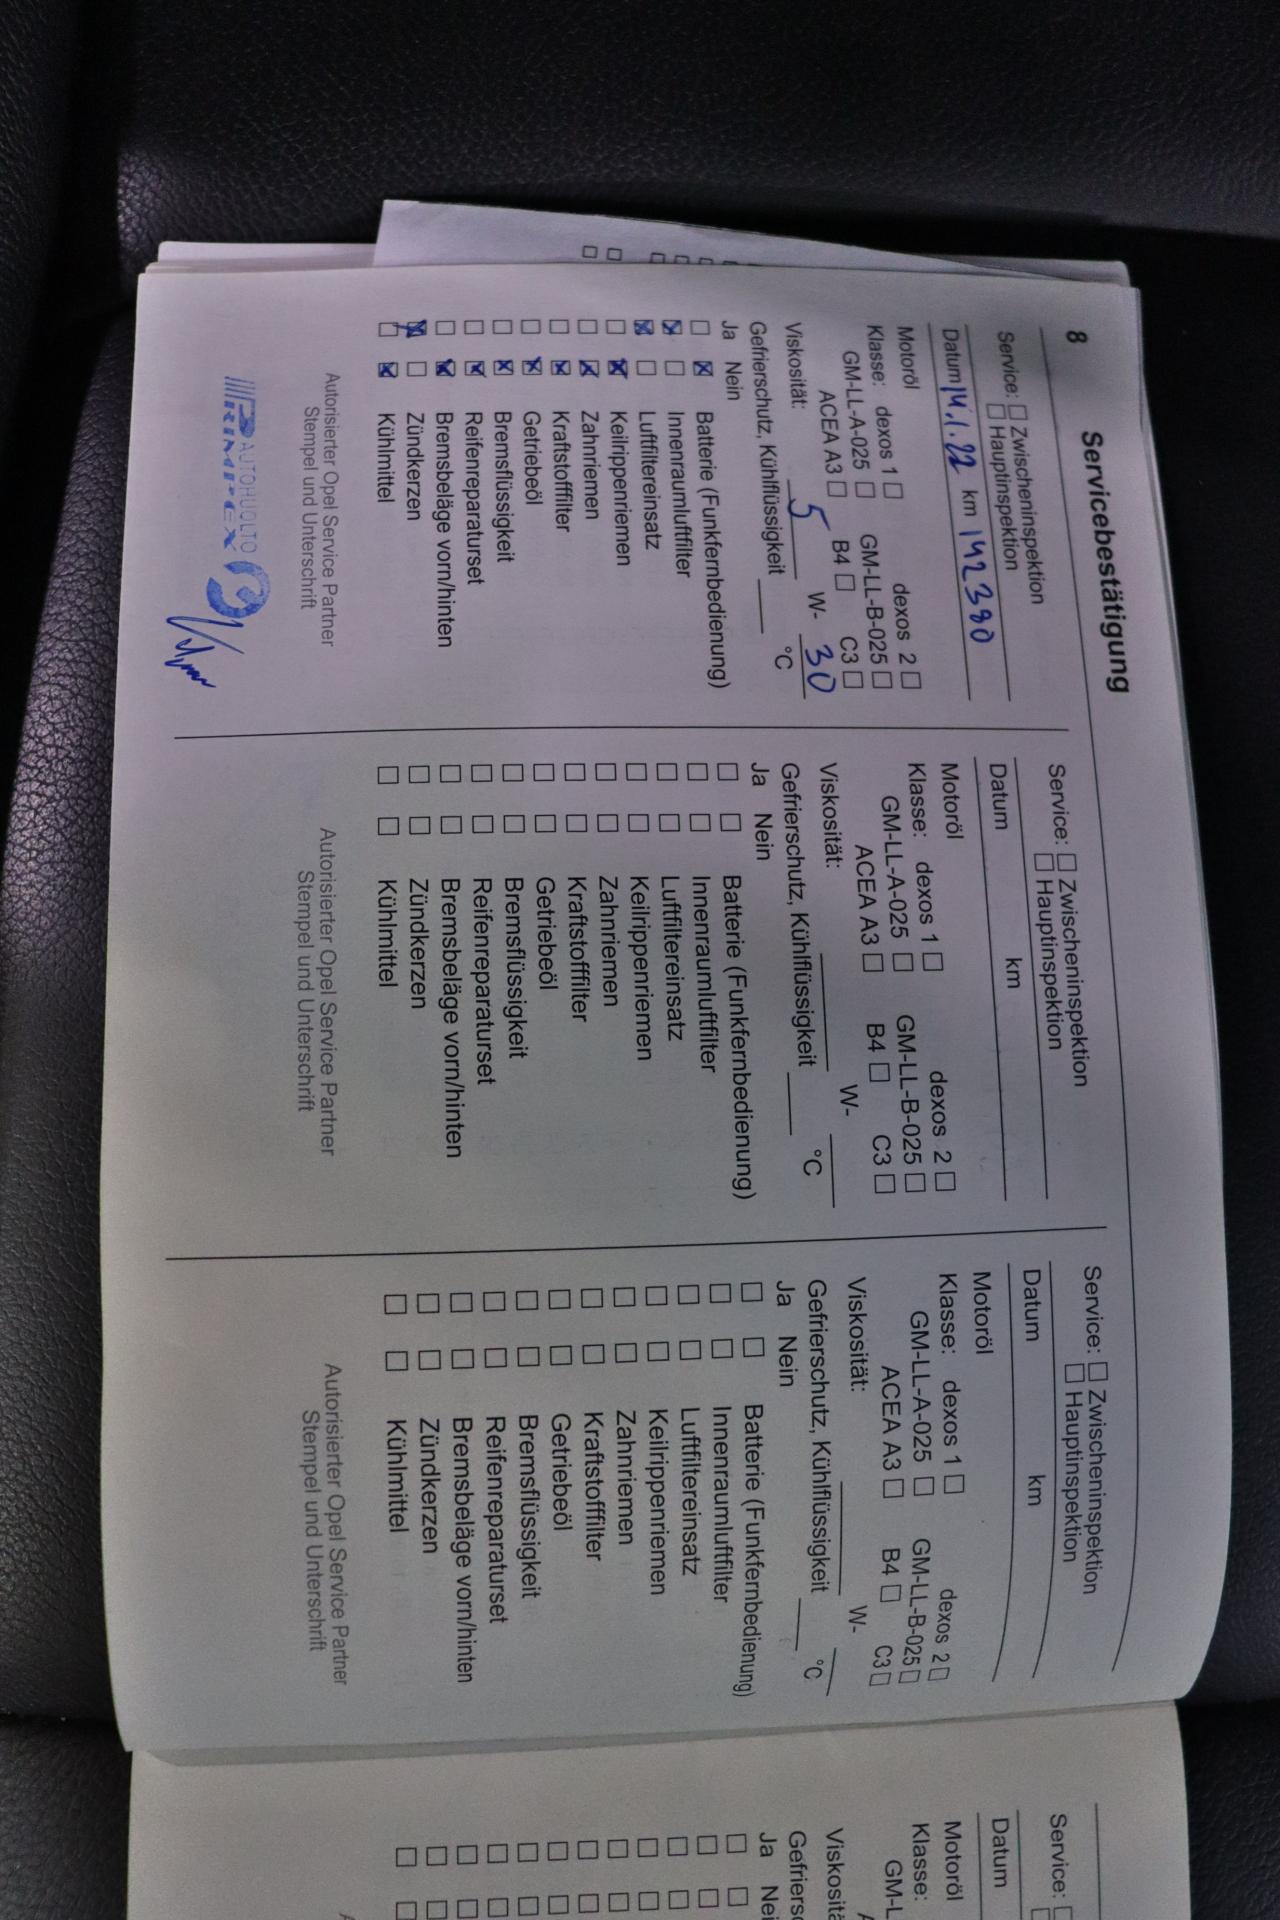 8 Servicebestätigung
Service: ☐ Zwischeninspektion
☐ Hauptinspektion
Datum 14.1.22 km 142380
Motoröl
Klasse: dexos 1 ☐ dexos 2 ☐
GM-LL-A-025 ☐ GM-LL-B-025 ☐
ACEA A3 ☐ B4 ☐ C3 ☐
Viskosität: 5 W- 30
Gefrierschutz, Kühlflüssigkeit ____ °C
Ja Nein
☐ ☒ Batterie (Funkfernbedienung)
☒ ☐ Innenraumluftfilter
☒ ☐ Luftfiltereinsatz
☐ ☒ Keilrippenriemen
☐ ☒ Zahnriemen
☐ ☒ Kraftstofffilter
☐ ☒ Getriebeöl
☐ ☒ Bremsflüssigkeit
☐ ☒ Reifenreparaturset
☐ ☒ Bremsbeläge vorn/hinten
☒ ☐ Zündkerzen
☐ ☒ Kühlmittel
Autorisierter Opel Service Partner
Stempel und Unterschrift
AUTOHUOLTO
RIMPEX
Service: ☐ Zwischeninspektion
☐ Hauptinspektion
Datum km
Motoröl
Klasse: dexos 1 ☐ dexos 2 ☐
GM-LL-A-025 ☐ GM-LL-B-025 ☐
ACEA A3 ☐ B4 ☐ C3 ☐
Viskosität: ____ W- ____
Gefrierschutz, Kühlflüssigkeit ____ °C
Ja Nein
☐ ☐ Batterie (Funkfernbedienung)
☐ ☐ Innenraumluftfilter
☐ ☐ Luftfiltereinsatz
☐ ☐ Keilrippenriemen
☐ ☐ Zahnriemen
☐ ☐ Kraftstofffilter
☐ ☐ Getriebeöl
☐ ☐ Bremsflüssigkeit
☐ ☐ Reifenreparaturset
☐ ☐ Bremsbeläge vorn/hinten
☐ ☐ Zündkerzen
☐ ☐ Kühlmittel
Autorisierter Opel Service Partner
Stempel und Unterschrift
Service: ☐ Zwischeninspektion
☐ Hauptinspektion
Datum km
Motoröl
Klasse: dexos 1 ☐ dexos 2 ☐
GM-LL-A-025 ☐ GM-LL-B-025 ☐
ACEA A3 ☐ B4 ☐ C3 ☐
Viskosität: ____ W- ____
Gefrierschutz, Kühlflüssigkeit ____ °C
Ja Nein
☐ ☐ Batterie (Funkfernbedienung)
☐ ☐ Innenraumluftfilter
☐ ☐ Luftfiltereinsatz
☐ ☐ Keilrippenriemen
☐ ☐ Zahnriemen
☐ ☐ Kraftstofffilter
☐ ☐ Getriebeöl
☐ ☐ Bremsflüssigkeit
☐ ☐ Reifenreparaturset
☐ ☐ Bremsbeläge vorn/hinten
☐ ☐ Zündkerzen
☐ ☐ Kühlmittel
Autorisierter Opel Service Partner
Stempel und Unterschrift
Service: ☐
Datum
Motoröl
Klasse:
GM-L
Viskositä
Gefriers
Ja Nei